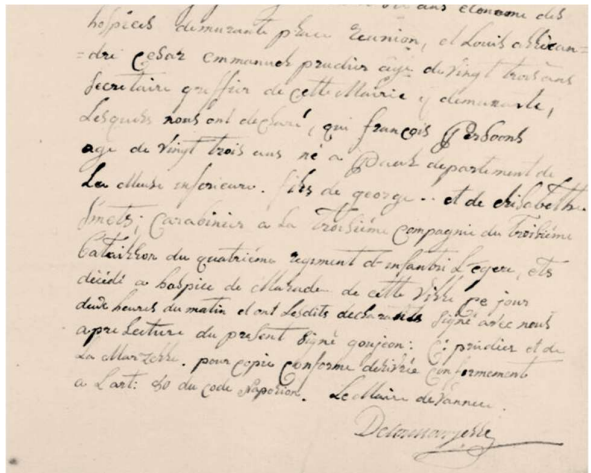 ans économe des
hospices demurante place reunion, et Louis allexan=
=dre Cesar emmanuel prudier agé de vingt trois ans
Secretaire greffier de cette Mairie y demurante,
Lesquels nous ont declaré, qui françois Persoons
age de vingt trois ans né a departement de
La Meuse inferieure. fils de george .. et de elisabethe
Smets; Carabinier a la troisiéme Compagnie du troisiéme
bataillon du quatriéme regiment d infantri Legere, ets
décédé a hospice de Malade de cette Ville ce jour
deux heures du matin et ont Lesdits declarants Signé avec nous
apre Lecture du present Signé goujeon: C: prudier et de
La Marzelle. pour copie Conforme délivrée Conformement
a L'art: 80 du code Napoleon. Le Maire de Vannes.
Delamarzelle